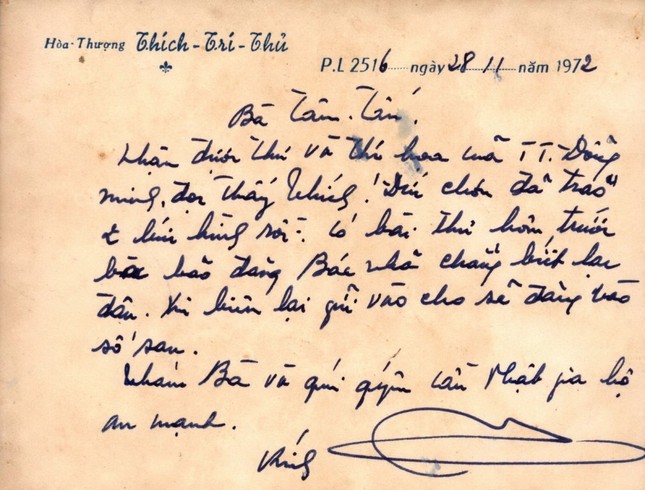 Hòa-Thượng Thích-Trí-Thủ
P.L 2516 ngày 28 11 năm 1972
Bà Tâm-Tấn!
Nhận được thư và thi hoa của TT. Đồng
minh, đọc thấy thích! Đức chơn đã trao
có bài thơ hôm trước
bảo đăng Bác Nhã chẳng biết lạc
đâu. Xin biên lại gửi vào cho sẽ đăng vào
số sau.
Thăm Bà và quí quyến cầu Phật gia hộ
an mạnh.
Kính